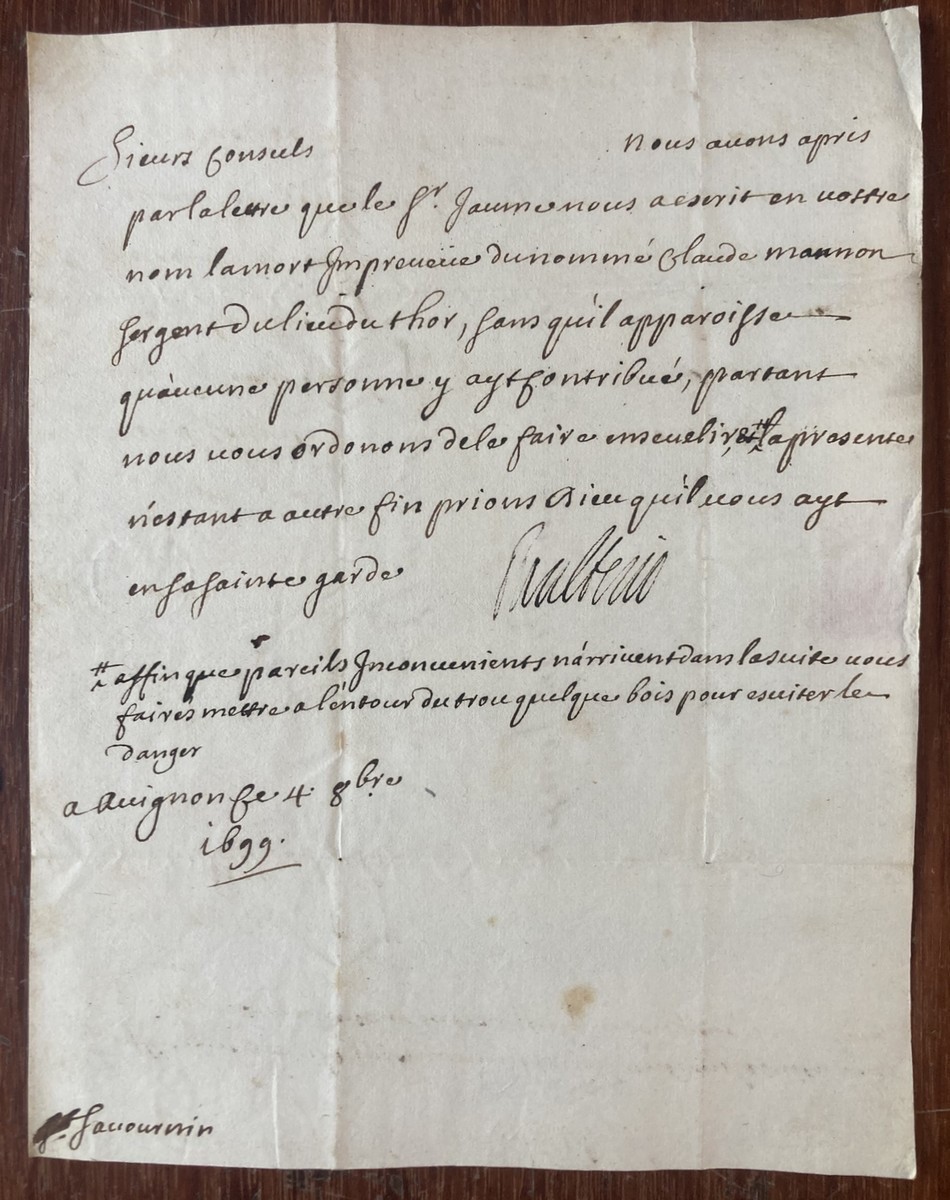 Sieurs Consuls nous auons apris
par la lettre que le Sr. Jaume nous a escrit en vostre
nom la mort Impreueüe du nommé Claude mannon
sergent du lieu du thor, sans qu'il apparoisse
qu'aucune personne y ayt contribué, partant
nous vous ordonons de le faire enseuelir, et # la presente
n'estant a autre fin prions Dieu qu'il vous ayt
en sa sainte garde
# affin que pareils Inconuenients n'arriuent dans la suite vous
faires mettre a l'entour du trou quelque bois pour esuiter le
danger
a Auignon ce 4. 8bre
1699.
St. Sauournin